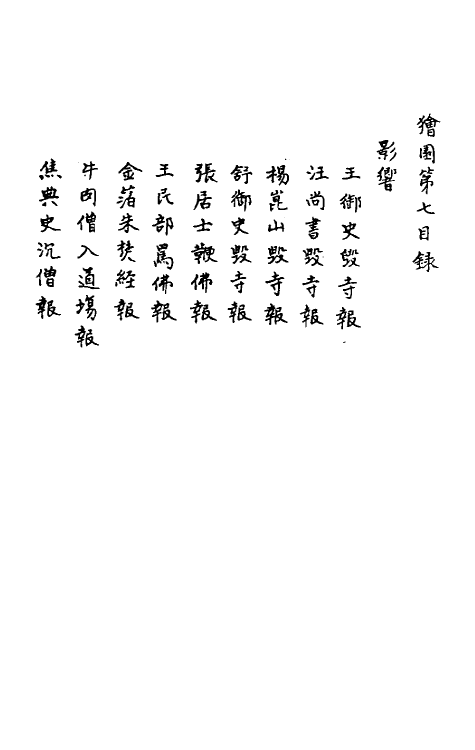 獪園第七目錄
影響
王御史毁寺報
汪尚書毁寺報
楊崑山毁寺報
舒御史毁寺報
張居士鞭佛報
王民部罵佛報
金箔朱焚經報
牛肉僧入道場報
焦典史沉僧報